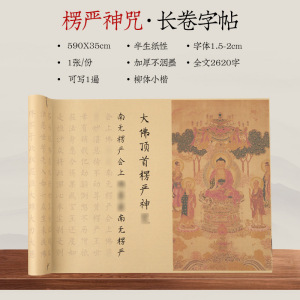 楞严神咒·长卷字帖
•590X35cm
•半生纸性
•字体1.5-2cm
•1张/份
•加厚不洇墨
•全文2620字
•可写1遍
•柳体小楷
大佛顶首楞严神
南无楞严会上
南无楞严